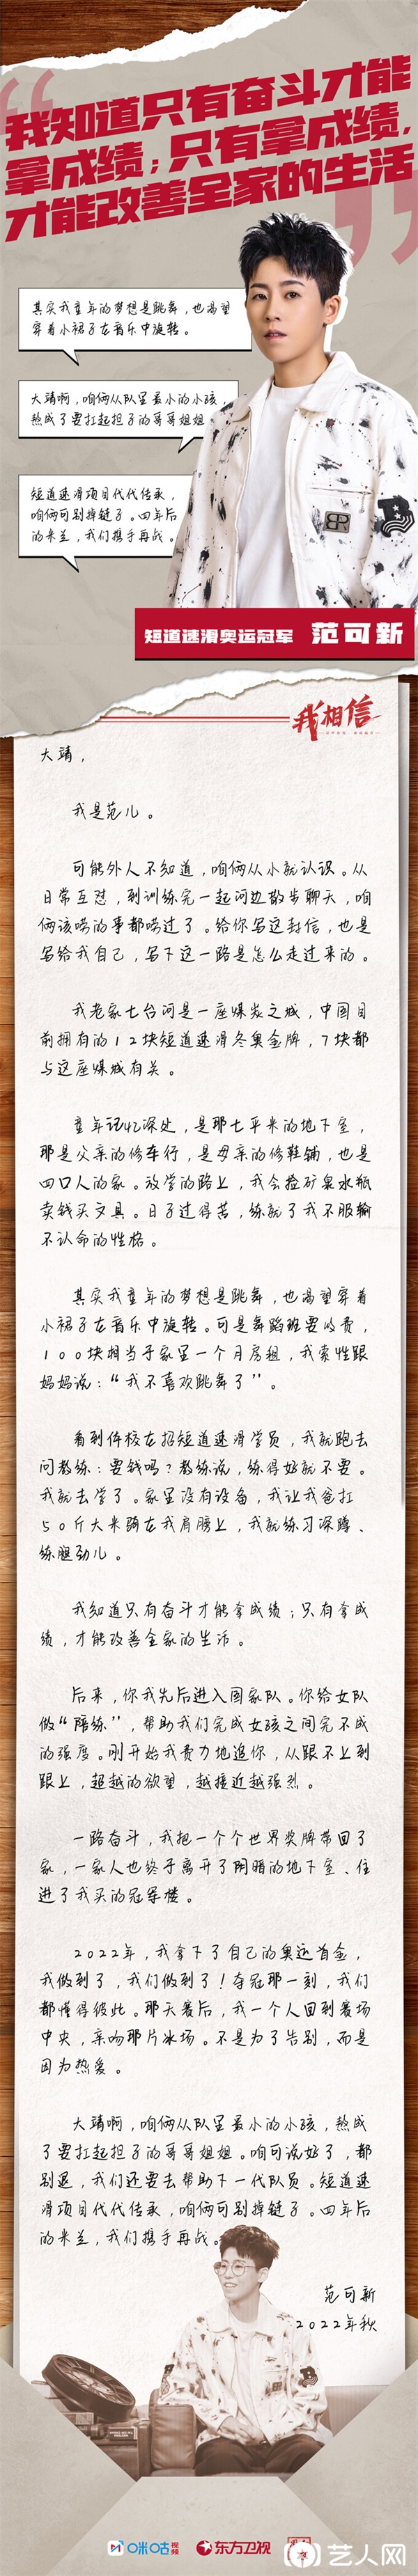 我知道只有奋斗才能
拿成绩；只有拿成绩，
才能改善全家的生活
其实我童年的梦想是跳舞，也渴望
穿着小裙子在音乐中旋转。
大靖啊，咱俩从队里最小的小孩，
熬成了要扛起担子的哥哥姐姐
短道速滑项目代代传承，
咱俩可别掉链子。四年后
的米兰，我们携手再战。
短道速滑奥运冠军 范可新
我相信
大靖，
我是范儿。
可能外人不知道，咱俩从小就认识。从
日常互怼，到训练完一起河边散步聊天，咱
俩该唠的事都唠过了。给你写这封信，也是
写给我自己，写下这一路是怎么走过来的。
我老家七台河是一座煤炭之城，中国目
前拥有的12块短道速滑冬奥金牌，7块都
与这座煤城有关。
童年记忆深处，是那七平米的地下室，
那是父亲的修车行，是母亲的修鞋铺，也是
四口人的家。放学的路上，我会捡矿泉水瓶
卖钱买文具。日子过得苦，练就了我不服输
不认命的性格。
其实我童年的梦想是跳舞，也渴望穿着
小裙子在音乐中旋转。可是舞蹈班要收费，
100块相当于家里一个月房租，我索性跟
妈妈说：“我不喜欢跳舞了”。
看到体校在招短道速滑学员，我就跑去
问教练：要钱吗？教练说，练得好就不要。
我就去学了。家里没有设备，我让我爸扛
50斤大米骑在我肩膀上，我就练习深蹲、
练腿劲儿。
我知道只有奋斗才能拿成绩；只有拿成
绩，才能改善全家的生活。
后来，你我先后进入国家队。你给女队
做“陪练”，帮助我们完成女孩之间完不成
的强度。刚开始我费力地追你，从跟不上到
跟上，超越的欲望，越接近越强烈。
一路奋斗，我把一个个世界奖牌带回了
家，一家人也终于离开了阴暗的地下室、住
进了我买的冠军楼。
2022年，我拿下了自己的奥运首金，
我做到了，我们做到了！夺冠那一刻，我们
都懂得彼此。那天赛后，我一个人回到赛场
中央，亲吻那片冰场。不是为了告别，而是
因为热爱。
大靖啊，咱俩从队里最小的小孩，熬成
了要扛起担子的哥哥姐姐。咱可说好了，都
别退，我们还要去帮助下一代队员。短道速
滑项目代代传承，咱俩可别掉链子。四年后
的米兰，我们携手再战。
范可新
2022年秋
咪咕视频 东方卫视
艺人网